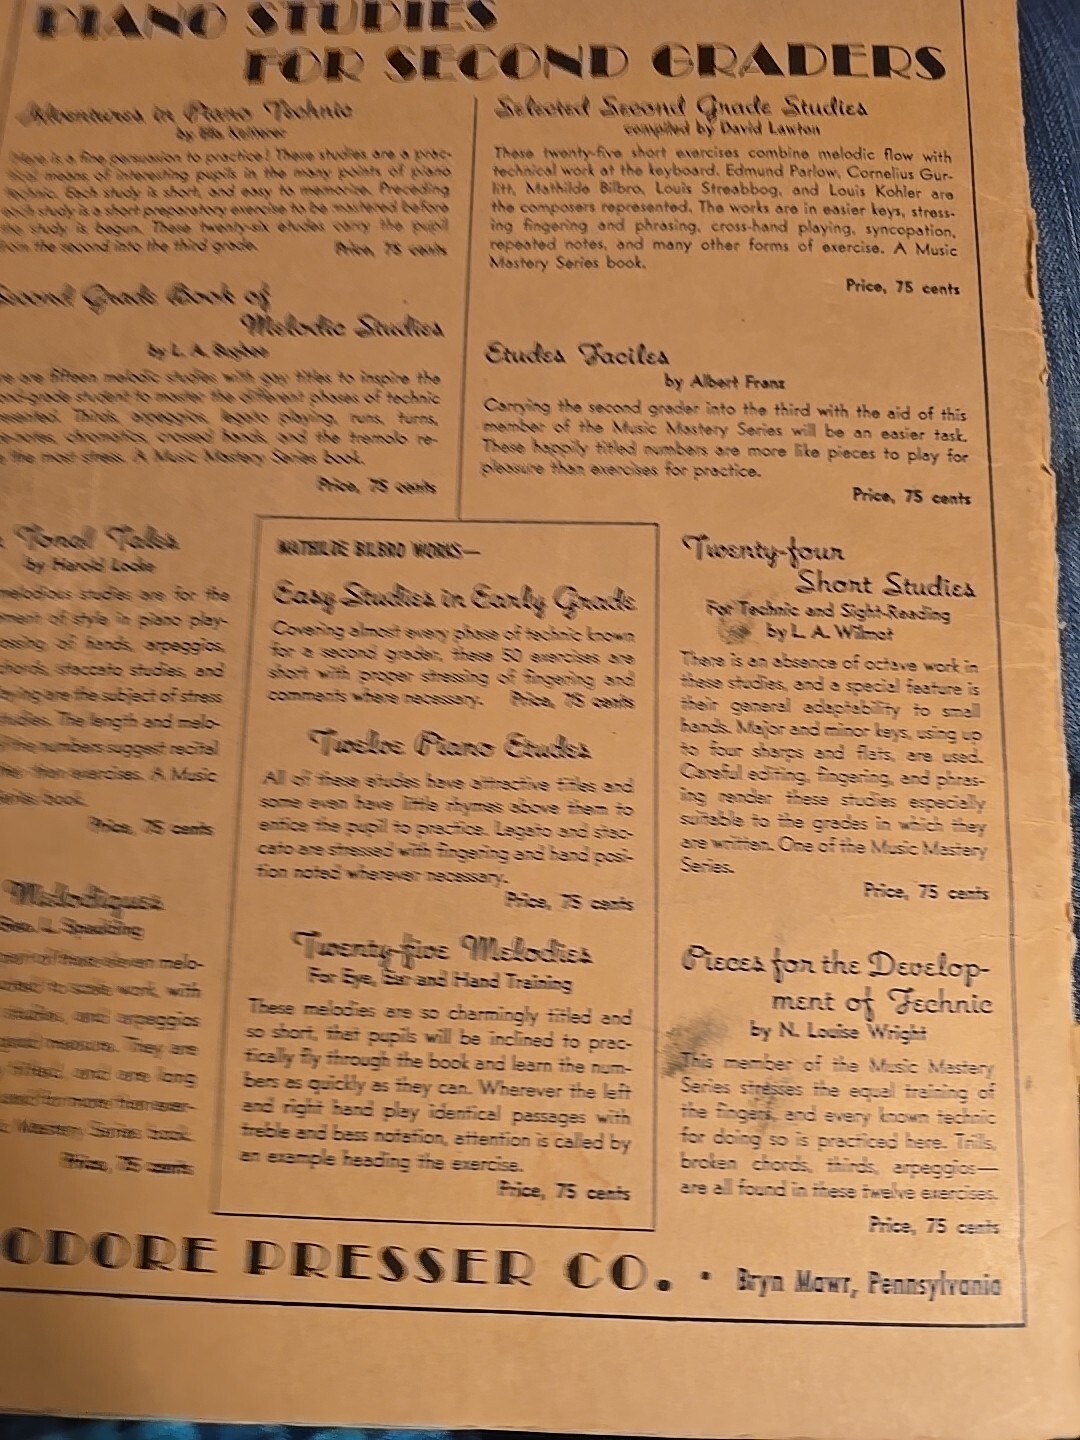 PIANO STUDIES
FOR SECOND GRADERS
Adventures in Piano Technic
by Ella Ketterer
Here is a fine persuasion to practice! These studies are a prac-
tical means of interesting pupils in the many points of piano
technic. Each study is short, and easy to memorize. Preceding
each study is a short preparatory exercise to be mastered before
the study is begun. These twenty-six etudes carry the pupil
from the second into the third grade. Price, 75 cents
Second Grade Book of
Melodic Studies
by L. A. Bugbee
are fifteen melodic studies with gay titles to inspire the
student to master the different phases of technic
Thirds, arpeggios, legato playing, runs, turns,
chromatics, crossed hands, and the tremolo re-
the most stress. A Music Mastery Series book.
Price, 75 cents
Selected Second Grade Studies
compiled by David Lawton
These twenty-five short exercises combine melodic flow with
technical work at the keyboard. Edmund Parlow, Cornelius Gur-
litt, Mathilde Bilbro, Louis Streabbog, and Louis Kohler are
the composers represented. The works are in easier keys, stress-
ing fingering and phrasing, cross-hand playing, syncopation,
repeated notes, and many other forms of exercise. A Music
Mastery Series book.
Price, 75 cents
Etudes Faciles
by Albert Franz
Carrying the second grader into the third with the aid of this
member of the Music Mastery Series will be an easier task.
These happily titled numbers are more like pieces to play for
pleasure than exercises for practice.
Price, 75 cents
Tonal Tales
by Harold Locke
melodious studies are for the
of style in piano play-
of hands, arpeggios,
chords, staccato studies, and
are the subject of stress
studies. The length and melo-
the numbers suggest recital
than exercises. A Music
Series book.
Price, 75 cents
Melodiques
Geo. L. Spaulding
eleven melo-
to scale work, with
studies, and arpeggios
measure. They are
titled, and are long
Mastery Series book.
Price, 75 cents
MATHILDE BILBRO WORKS—
Easy Studies in Early Grade
Covering almost every phase of technic known
for a second grader, these 50 exercises are
short with proper stressing of fingering and
comments where necessary. Price, 75 cents
Twelve Piano Etudes
All of these etudes have attractive titles and
some even have little rhymes above them to
entice the pupil to practice. Legato and stac-
cato are stressed with fingering and hand posi-
tion noted wherever necessary.
Price, 75 cents
Twenty-five Melodies
For Eye, Ear and Hand Training
These melodies are so charmingly titled and
so short, that pupils will be inclined to prac-
tically fly through the book and learn the num-
bers as quickly as they can. Wherever the left
and right hand play identical passages with
treble and bass notation, attention is called by
an example heading the exercise.
Price, 75 cents
Twenty-four
Short Studies
For Technic and Sight-Reading
by L. A. Wilmot
There is an absence of octave work in
these studies, and a special feature is
their general adaptability to small
hands. Major and minor keys, using up
to four sharps and flats, are used.
Careful editing, fingering, and phras-
ing render these studies especially
suitable to the grades in which they
are written. One of the Music Mastery
Series.
Price, 75 cents
Pieces for the Develop-
ment of Technic
by N. Louise Wright
This member of the Music Mastery
Series stresses the equal training of
the fingers, and every known technic
for doing so is practiced here. Trills,
broken chords, thirds, arpeggios—
are all found in these twelve exercises.
Price, 75 cents
ODORE PRESSER CO. • Bryn Mawr, Pennsylvania